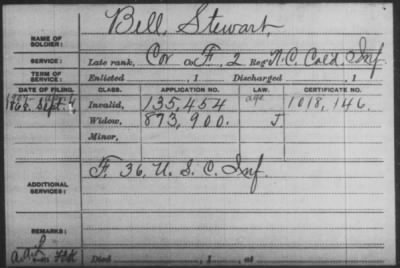 NAME OF SOLDIER: Bell, Stewart
SERVICE: Late rank, Cor Co. F, 2 Reg't N.C. Cold. Inf
TERM OF SERVICE: Enlisted , 1 Discharged , 1
DATE OF FILING. CLASS. APPLICATION NO. LAW. CERTIFICATE NO.
Sept. 4 Invalid, 135,454 age 1018,146.
Widow, 873,900. J
Minor,
ADDITIONAL SERVICES: F. 36, U. S. C. Inf.
REMARKS:
Died , 1 , at